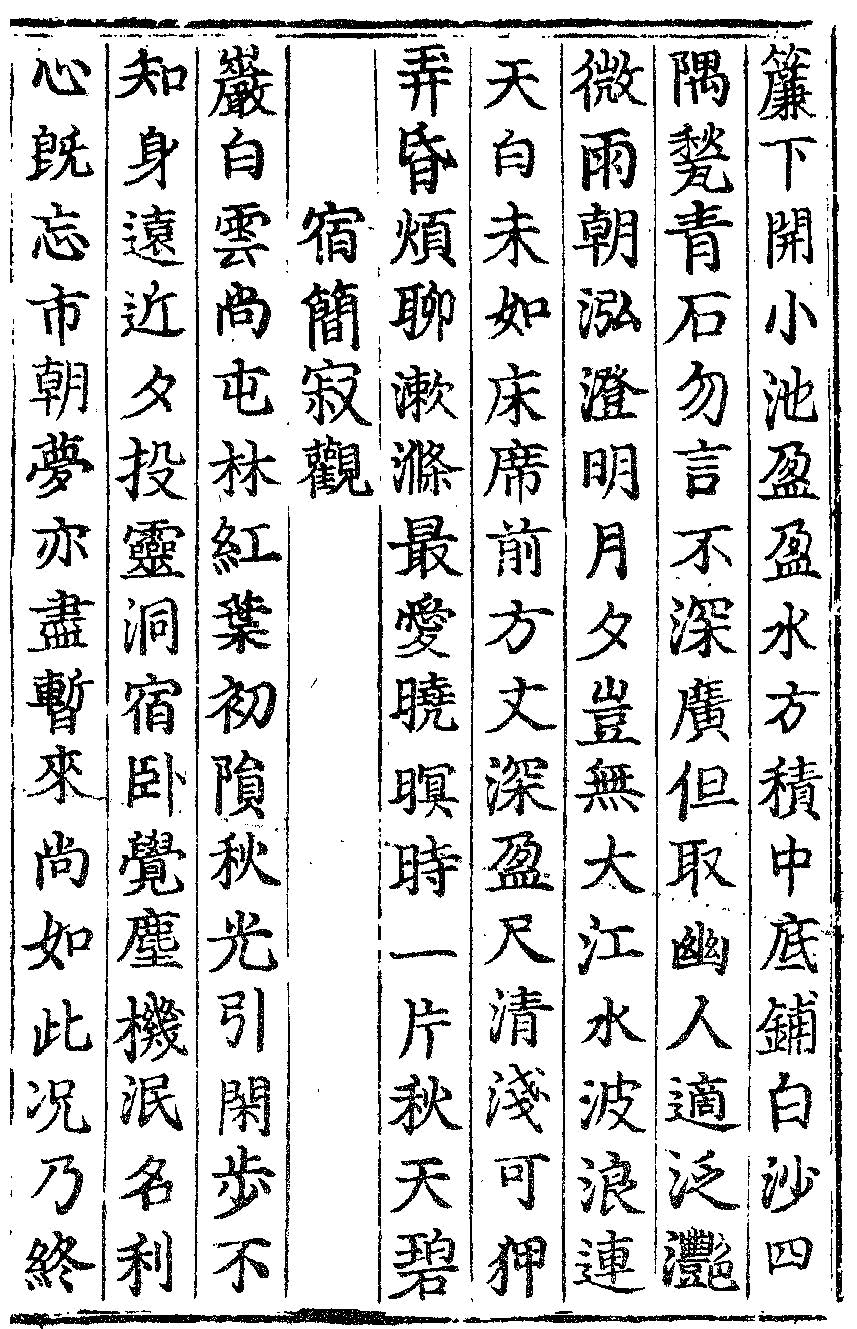 簾下開小池盈盈水方積中底鋪白沙四
隅甃青石勿言不深廣但取幽人適泛灔
微雨朝泓澄明月夕豈無大江水波浪連
天白未如床席前方丈深盈尺清淺可狎
弄昏煩聊漱滌最愛曉暝時一片秋天碧
宿簡寂觀
巖白雲尚屯林紅葉初隕秋光引閑步不
知身遠近夕投靈洞宿卧覺塵機泯名利
心旣忘市朝夢亦盡暫來尚如此况乃終